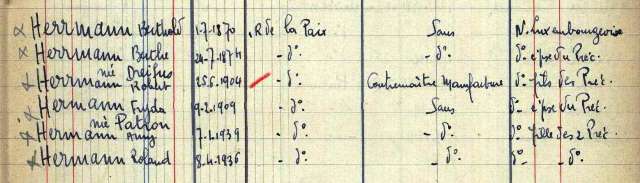 x Herrmann Berthold 1-7-1870 .R de la Paix Sans N. Luxembourgeoise
x Herrmann Berthe 24-7-1874 - d°. - d°. d° épse du Préc.
née Dreifus
x Herrmann Robert 25.6.1904 - d°. Contremaître Manufacture d°- fils des Préc.
x Herrmann Fryda 9-2.1909 - d°. Sans d°- épse du Préc.
née Patron
x Hermann Amy 7-1.1939 - d°. - d°. d° fille des 2 Préc.
x Hermann Roland 8-4-1936 - d°. - d°. d°- - d°.